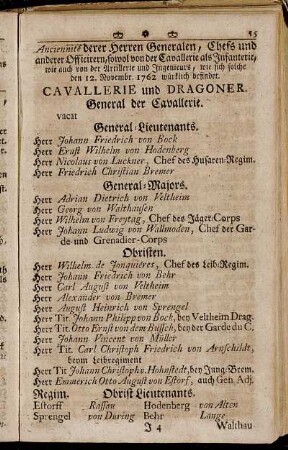 15
Ancienneté derer Herren Generalen, Chefs und
anderer Officirern, sowol von der Cavallerie als Infanterie,
wie auch von der Artillerie und Ingenieurs, wie sich solche
den 12. Novembr. 1762 würklich befindet.
CAVALLERIE und DRAGONER.
General der Cavallerie.
vacat
General-Lieutenants.
Herr Johann Friedrich von Bock
Herr Ernst Wilhelm von Hodenberg
Herr Nicolaus von Luckner, Chef des Husaren-Regim.
Herr Friedrich Christian Bremer
General-Majors.
Herr Adrian Dietrich von Veltheim
Herr Georg von Walthausen
Herr Wilhelm von Freytag, Chef des Jäger-Corps
Herr Johann Ludwig von Wallmoden, Chef der Gar-
de- und Grenadier-Corps
Obristen.
Herr Wilhelm de Jonquieret, Chef des Leib-Regim.
Herr Johann Friedrich von Behr
Herr Carl August von Veltheim
Herr Alexander von Bremer
Herr August Heinrich von Sprengel
Herr Tit. Johann Philipp von Bock, bey Veltheim Drag.
Herr Tit. Otto Ernst von dem Bussch, bey der Garde du C.
Herr Johann Vincent von Müller
Herr Tit. Carl Christoph Friedrich von Arnschildt,
beym Leibregiment
Herr Tit. Johann Christoph v. Hohnstedt, bey Jung-Brem.
Herr Emmerich Otto August von Estorf, auch Gen. Adj.
Regim. Obrist Lieutenants.
Estorff Rossau Hodenberg von Alten
Sprengel von During Behr Lange
J 4 Walthau